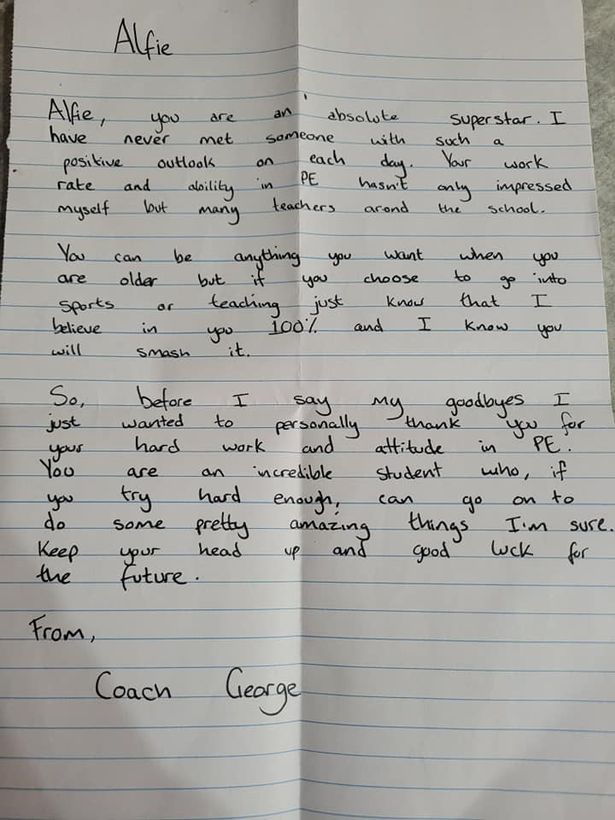 Alfie
Alfie, you are an absolute superstar. I
have never met someone with such a
positive outlook on each day. Your work
rate and ability in PE hasn't only impressed
myself but many teachers arond the school.
You can be anything you want when you
are older but if you choose to go into
sports or teaching just know that I
believe in you 100% and I know you
will smash it.
So, before I say my goodbyes I
just wanted to personally thank you for
your hard work and attitude in PE.
You are an incredible student who, if
you try hard enough, can go on to
do some pretty amazing things I'm sure.
Keep your head up and good luck for
the future.
From,
Coach George